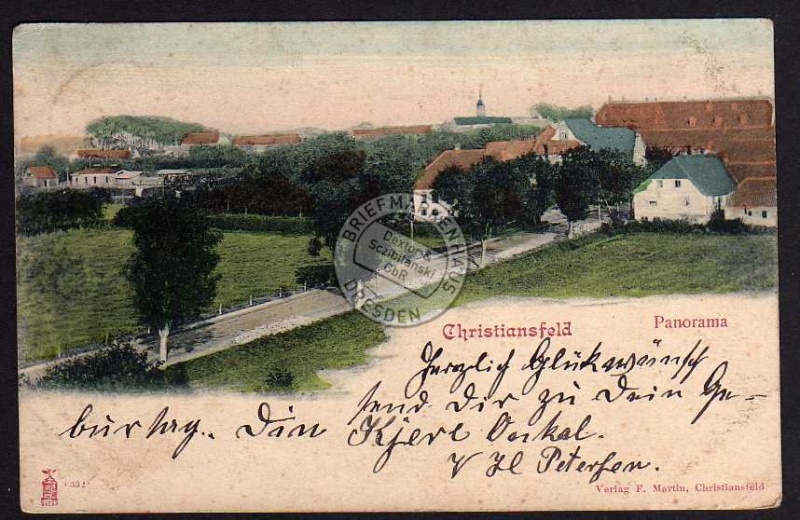 BRIEFMARKENHAUS
Dexler &
Szibilanski
GbR
DRESDEN
Christiansfeld
Panorama
Herzlich Glückwünsch
send Dir zu Dein Ge-
burtsag. Din Kjere Onkal.
Petersen.
332
Verlag F. Martin, Christiansfeld